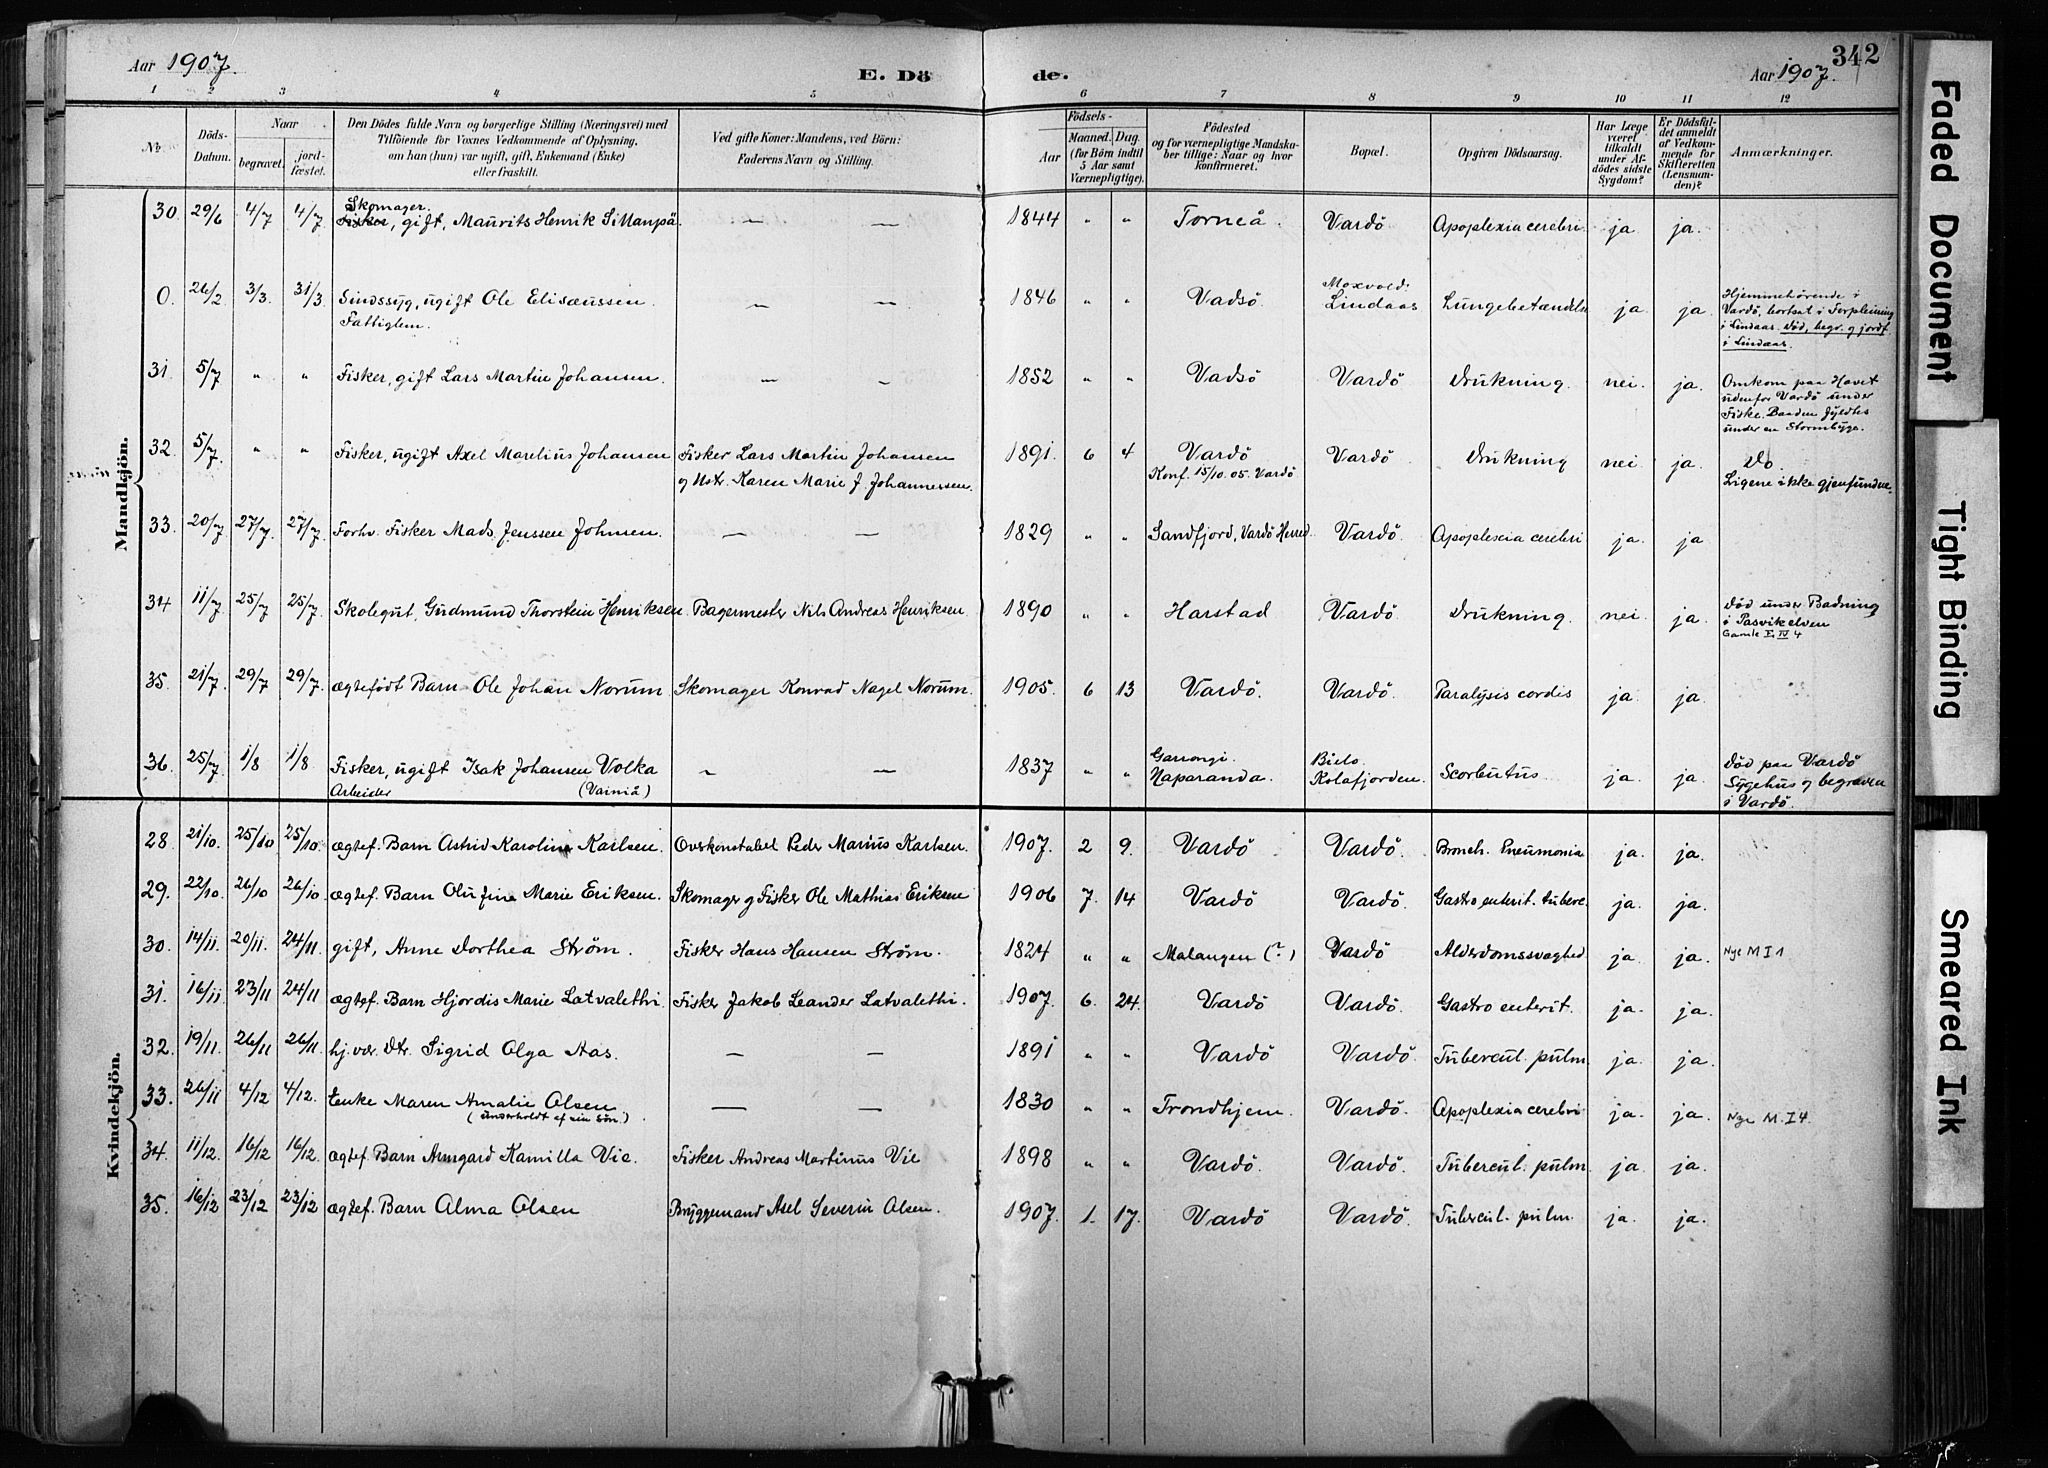 Aar 1907. E. Dö de. Aar 1907. 342
1 2 3 4 5 6 7 8 9 10 11 12
№ Döds-Datum. Naar begravet. jordfæstet. Den Dödes fulde Navn og borgerlige Stilling (Næringsvei) med Tilföiende for Voxnes Vedkommende af Oplysning, om han (hun) var ugift, gift, Enkemand (Enke) eller fraskilt. Ved gifte Koner: Mandens, ved Börn: Faderens Navn og Stilling. Födsels- Aar Maaned. Dag. (for Börn indtil 5 Aar samt Værnepligtige). Födested og for værnepligtige Mandskaber tillige: Naar og hvor konfirmeret. Bopæl. Opgiven Dödsaarsag. Har Læge været tilkaldt under Afdödes sidste Sygdom? Er Dödsfaldet anmeldt af Vedkommende for Skifteretten (Lensmanden)? Anmærkninger.
Mandkjön.
Skomager.
30. 29/6 4/7 4/7 Fisker, gift, Maurits Henrik Sillanpä. — — 1844 " " Torneå. Vardö Apoplexia cerebri. ja ja.
0. 26/2 3/3. 31/3 Sindssyg, ugift Ole Elisæussen. — — 1846 " " Vadsö. Moxvold: Lindaas Lungebetændelse ja ja. Hjemmehörende i
Fattiglem. Vardö, bortsat i Forpleining
i Lindaas. Död, begr. og jordf.
i Lindaas.
31. 5/7 " " Fisker, gift Lars Martin Johansen. — — 1852 " " Vadsö Vardö Drukning. nei. ja. Omkom paa Havet
udenfor Vardö under
Fiske. Baaden fyldtes
under en Stormbyge.
32. 5/7. " " Fisker, ugift Axel Marelius Johansen Fisker Lars Martin Johansen 1891 6 4 Vardö Vardö Drukning nei ja. Do.
og Hstr. Karen Marie J. Johannessen. Konf. 15/10.05. Vardö Ligene ikke gjenfundne.
33. 20/7 27/7. 27/7. Forhv. Fisker Mads Jenssen Johnsen. — — 1829 " " Sandfjord, Vardö Herred. Vardö. Apoplexia cerebri ja. ja
34 11/7 25/7 25/7. Skolegut, Gudmund Thorstein Henriksen Bagermester Nils Andreas Henriksen. 1890 " " Harstad Vardö Drukning. nei. ja. Död under Badning
i Pasvikelven
Gamle E. IV 4
35. 21/7. 29/7 29/7. ægtefödt Barn Ole Johan Norum Skomager Konrad Nagel Norum. 1905. 6 13 Vardö. Vardö. Paralysis cordis ja. ja.
36. 25/7 1/8 1/8. Fisker, ugift Isak Johansen Volka — — 1837 " " Haparanda. Kolafjorden. Scorbutus. ja. ja. Död paa Vardö
Arbeider (Vainiä) Sygehus og begraven
i Vardö.
Kvindekjön.
28. 21/10. 25/10 25/10. ægtef. Barn Astrid Karoline Karlsen. Overkonstabel Peder Marius Karlsen. 1907. 2 9. Vardö Vardö. Bronch. Pneumonia ja. ja.
29. 22/10. 26/10 26/10. ægtef. Barn Olufine Marie Eriksen. Skomager og Fisker Ole Mathias Eriksen 1906 7. 14 Vardö Vardö. Gastro enterit. tuberc. ja. ja.
30. 14/11. 20/11. 24/11 gift, Anne Dorthea Ström. Fisker Hans Hansen Ström. 1824 " " Malangen (?) Vardö Alderdomssvaghed ja. ja. Nye M I 1
31. 16/11 23/11 24/11 ægtef. Barn Hjördis Marie Latvalethi. Fisker Jakob Leander Latvalethi. 1907. 6. 24. Vardö Vardö. Gastro enterit. ja. ja.
32. 19/11. 26/11 26/11. hj.vær. Dtr. Sigrid Olga Aas. — — 1891 " " Vardö Vardö. Tubercul. pulm. ja. ja.
33. 26/11 4/12 4/12. Enke Maren Amalie Olsen — — 1830 " " Trondhjem. Vardö. Apoplexia cerebri ja. ja. Nye M. I 4.
(underholdt af sin Sön.)
34. 11/12. 16/12 16/12 ægtef Barn Armgard Kamilla Vie. Fisker Andreas Martinus Vie 1898 " " Vardö. Vardö. Tubercul. pulm. ja. ja.
35. 16/12 23/12 23/12 ægtef. Barn Alma Olsen Bryggemand Axel Severin Olsen. 1907. 1. 17. Vardö Vardö. Tubercul. pulm. ja. ja.
Faded Document
Tight Binding
Smeared Ink